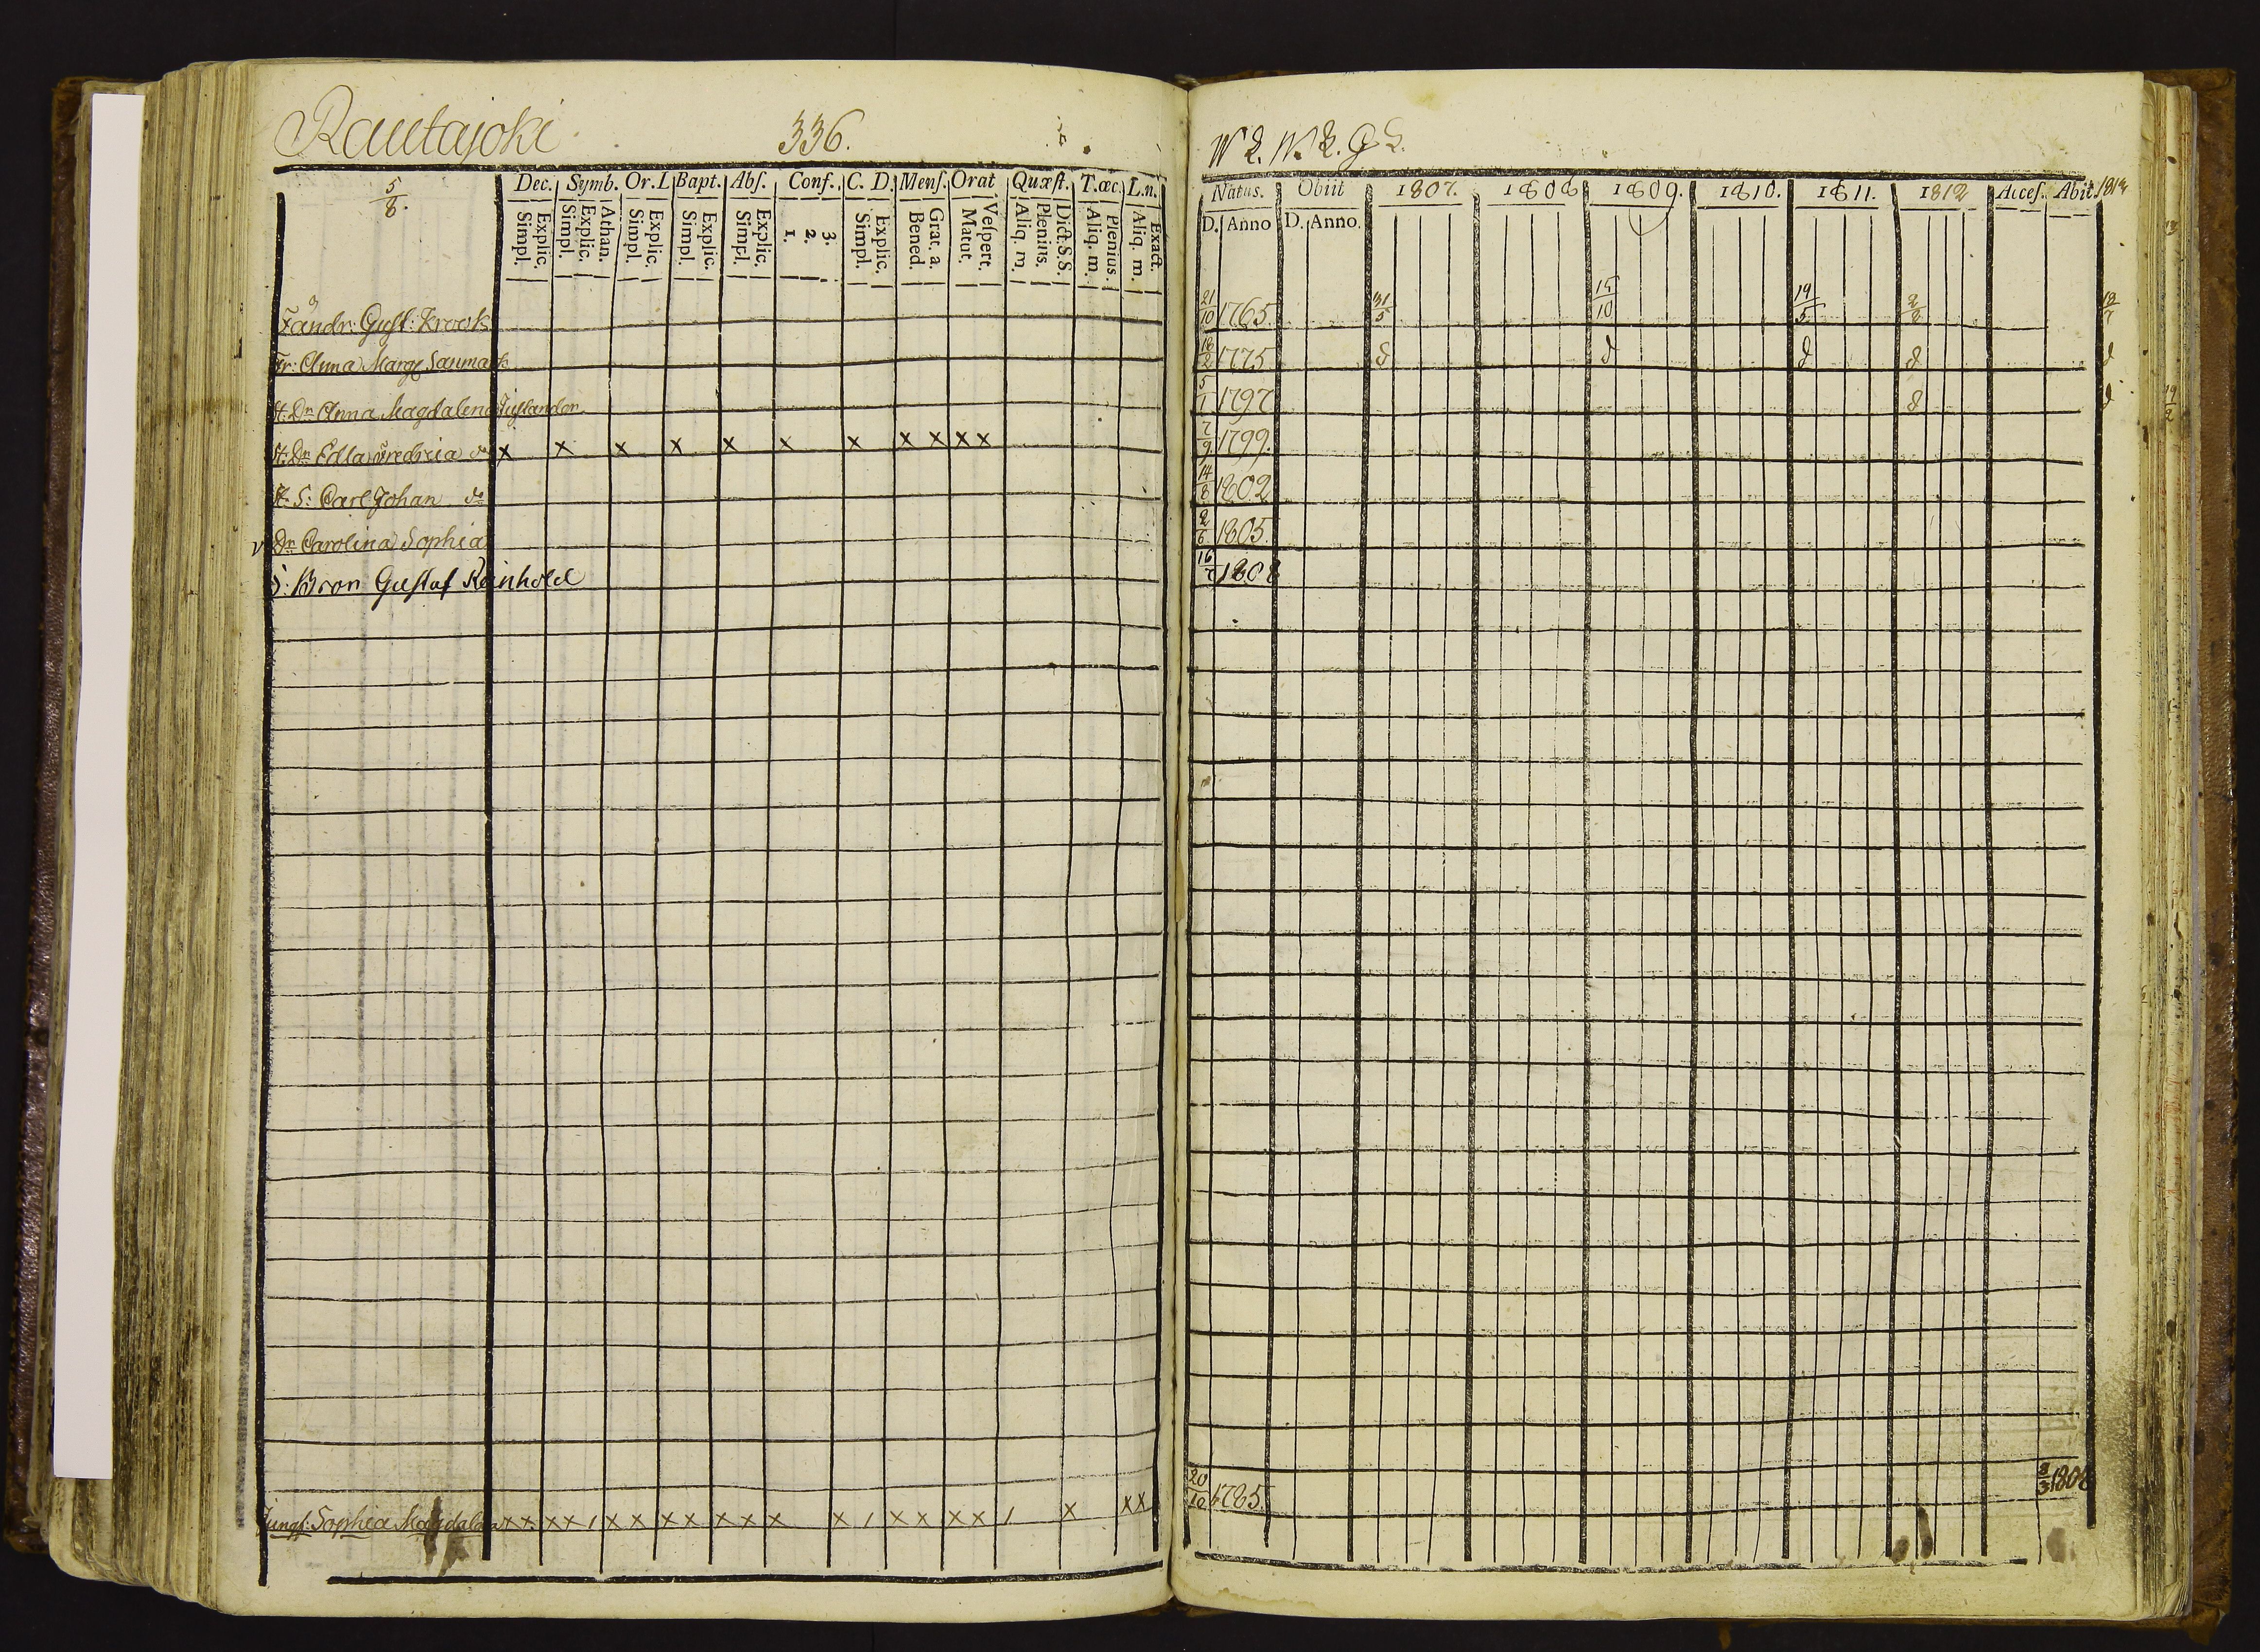 Rautajoki 336.
5/8.
Dec. Symb. Or.L Bapt. Abſ. Conf. C. D. Menſ. Orat Quæſt. T.œc. L.n.
Explic. Simpl. Athan. Explic. Simpl. Explic. Simpl. Explic. Simpl. Explic. Simpl. 3. 2. 1. Explic. Simpl. Grat. a. Bened. Veſpert. Matut. Dict.S.S. Plenius. Aliq. m. Plenius. Aliq. m. Exact. Aliq. m.
Fändr: Guſt: Krook
Fr: Anna Marg Sanmark
St. Dr Anna Magdalena
St. Dr Edla Fredrica do x x x x x x x x x x x
St. S: Carl Johan do
Dr Carolina Sophia
S: Bror Guſtaf Reinhold
Jungf: Sophia Magdalena x x x x 1 x x x x x x x x 1 x x x x 1 x x x
Natus. Obiit 1807. 1808 1809. 1810. 1811. 1812 Acceſ. Abit. 1813
D. Anno D. Anno.
21/10 1765. 31/5 15/10 19/5 2/8 18/7
18/2 1775 d d d d d
5/1 1797 d d
7/9 1799.
14/8 1802
2/6 1805
16/7 1808
20/10 1785. 8/3 1808